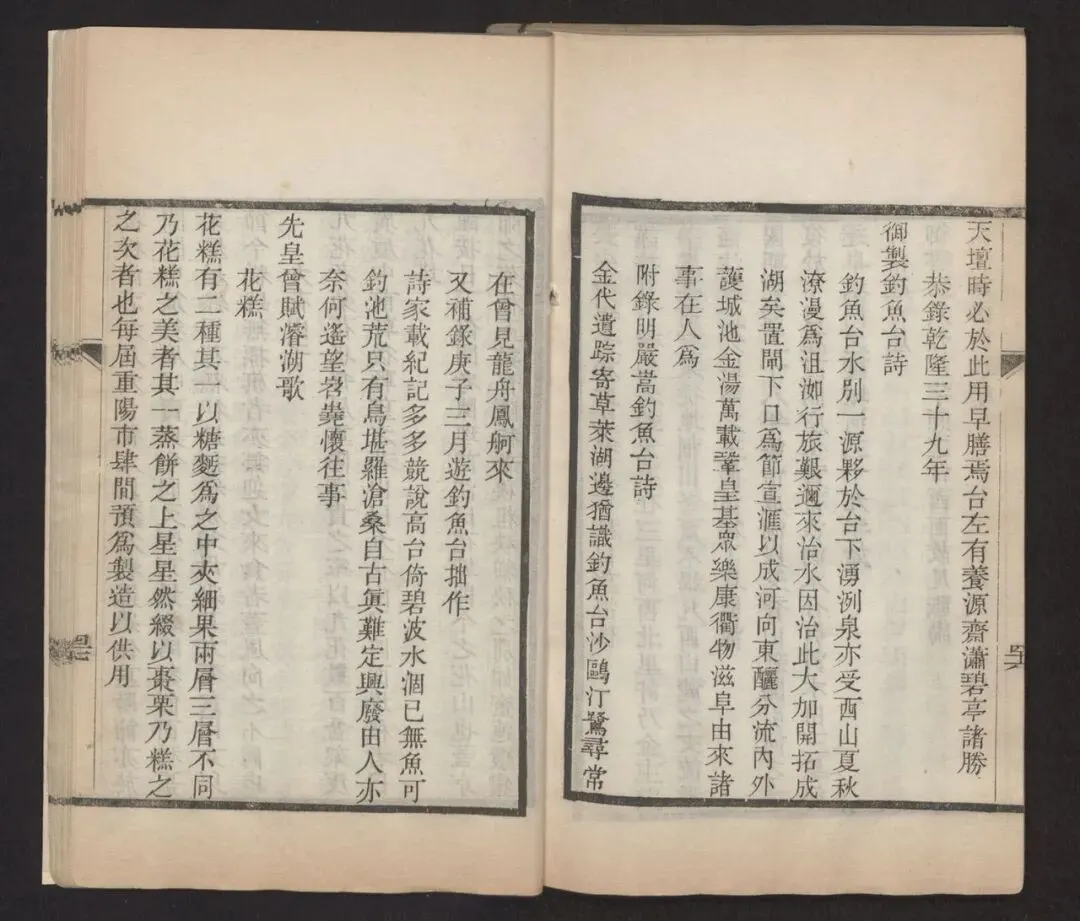 天壇時必於此用早膳焉台左有養源齋瀟碧亭諸勝
恭錄乾隆三十九年
御製釣魚台詩
釣魚台水別一源夥於台下湧洌泉亦受西山夏秋
潦漫為沮洳行旅艱邇來治水因治此大加開拓成
湖矣置閘下口為節宣滙以成河向東釃分流內外
護城池金湯萬載鞏皇基眾樂康衢物滋阜由來諸
事在人為
附錄明嚴嵩釣魚台詩
金代遺踪寄草萊湖邊猶識釣魚台沙鷗汀鷺尋常
在曾見龍舟鳳舸來
又補錄庚子三月遊釣魚台拙作
詩家載紀記多多競說高台倚碧波水涸已無魚可
釣池荒只有鳥堪羅滄桑自古眞難定興廢由人亦
奈何遙望岧嶤懷往事
先皇曾賦濬湖歌
花糕
花糕有二種其一以糖麫為之中夾細果兩層三層不同
乃花糕之美者其一蒸餅之上星星然綴以棗栗乃糕之
之次者也每屆重陽市肆間預為製造以供用